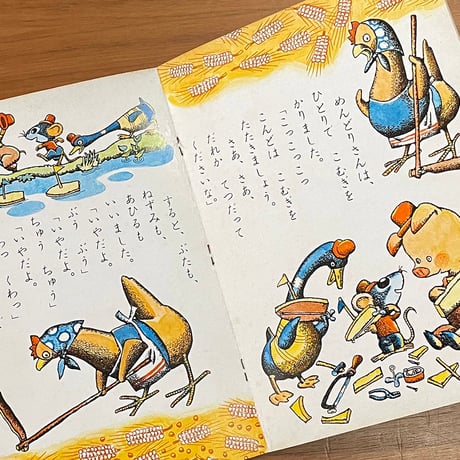 めんどりさんは、
ひとりで　こむぎを
かりました。
「こっこっこっ
こんどは　こむぎを
たたきましょう。
さあ、さあ、
だれか　てつだって
くださいな。」
すると、ぶたも、
ねずみも、
あひるも
いいました。
「いやだよ。
ぶう　ぶう」
「いやだよ。
ちゅう　ちゅう」
「いやだよ。
くわっ